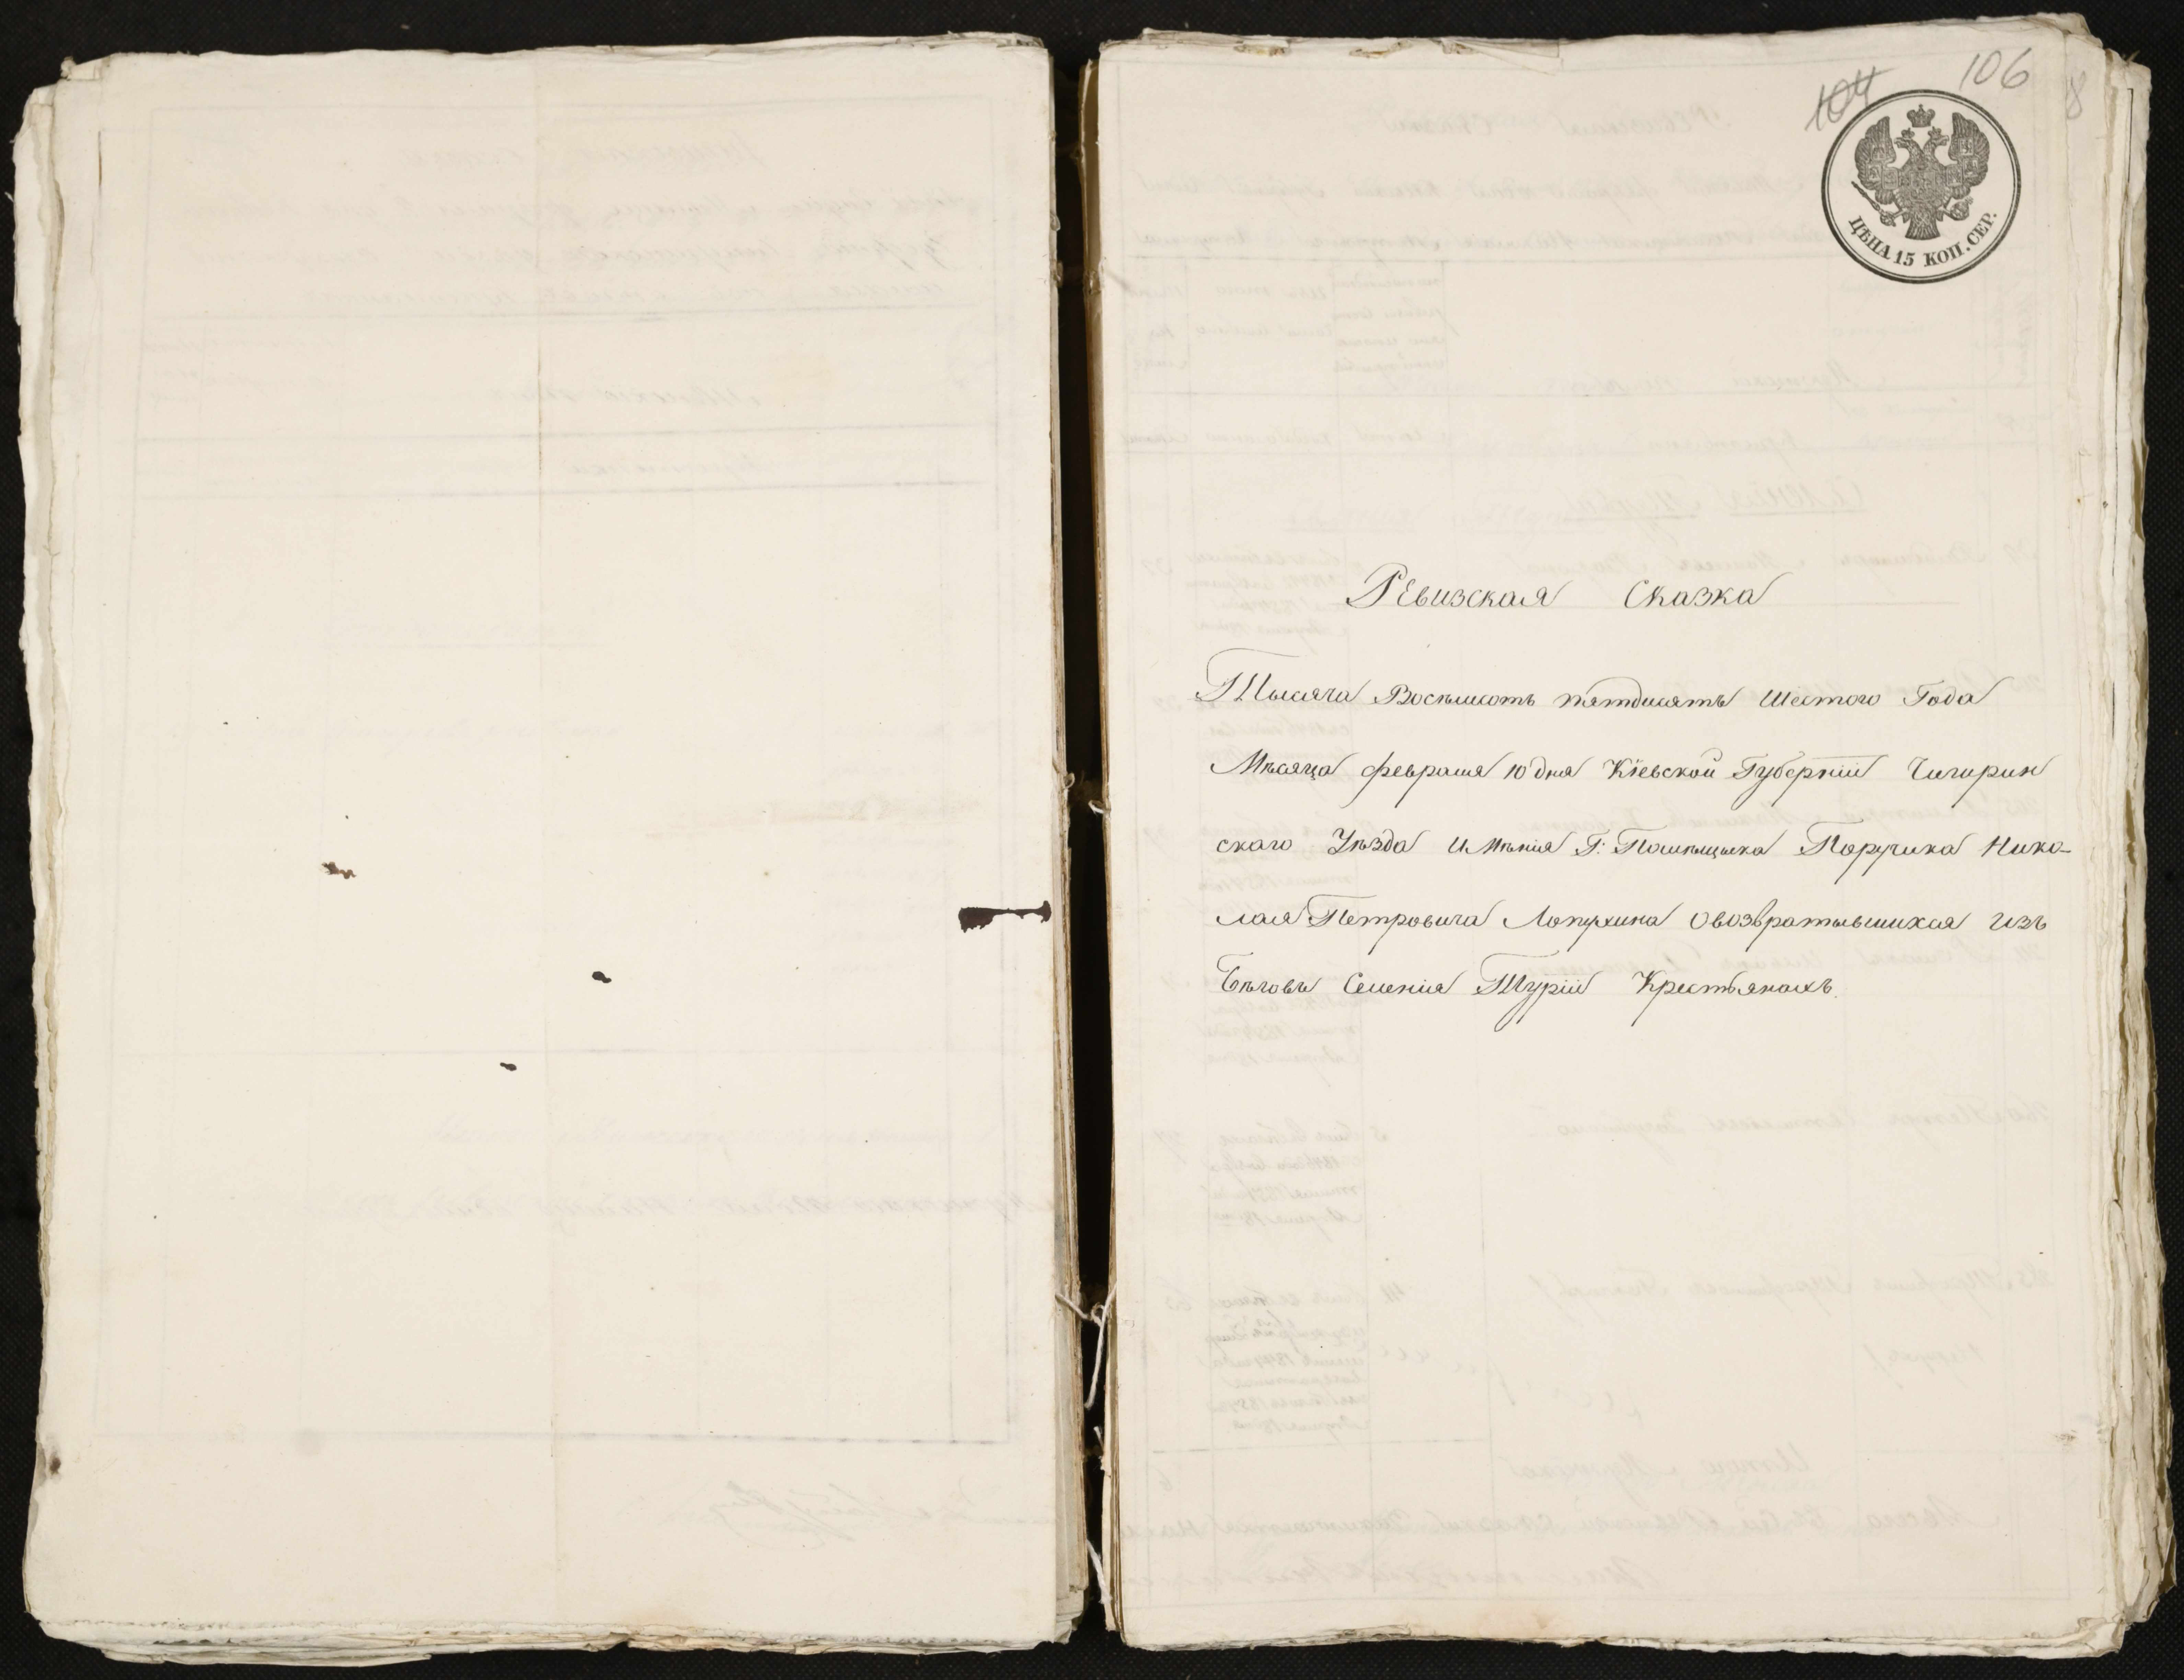 104
106
ЦѢНА 15 КОП. СЕР.
Ревизская Сказка
Тысяча Восѣмисотъ пятдисятъ Шестого Года
Мѣсяца февраля 10 дня Кіевской Губерніи Чигирин
скаго Уѣзда Имѣнія Г: Помѣщика Поручика Нико-
лая Петровича Лопухина Овозвратывшихся изъ
Бѣговъ Селенія Турiи Крестьянахъ.